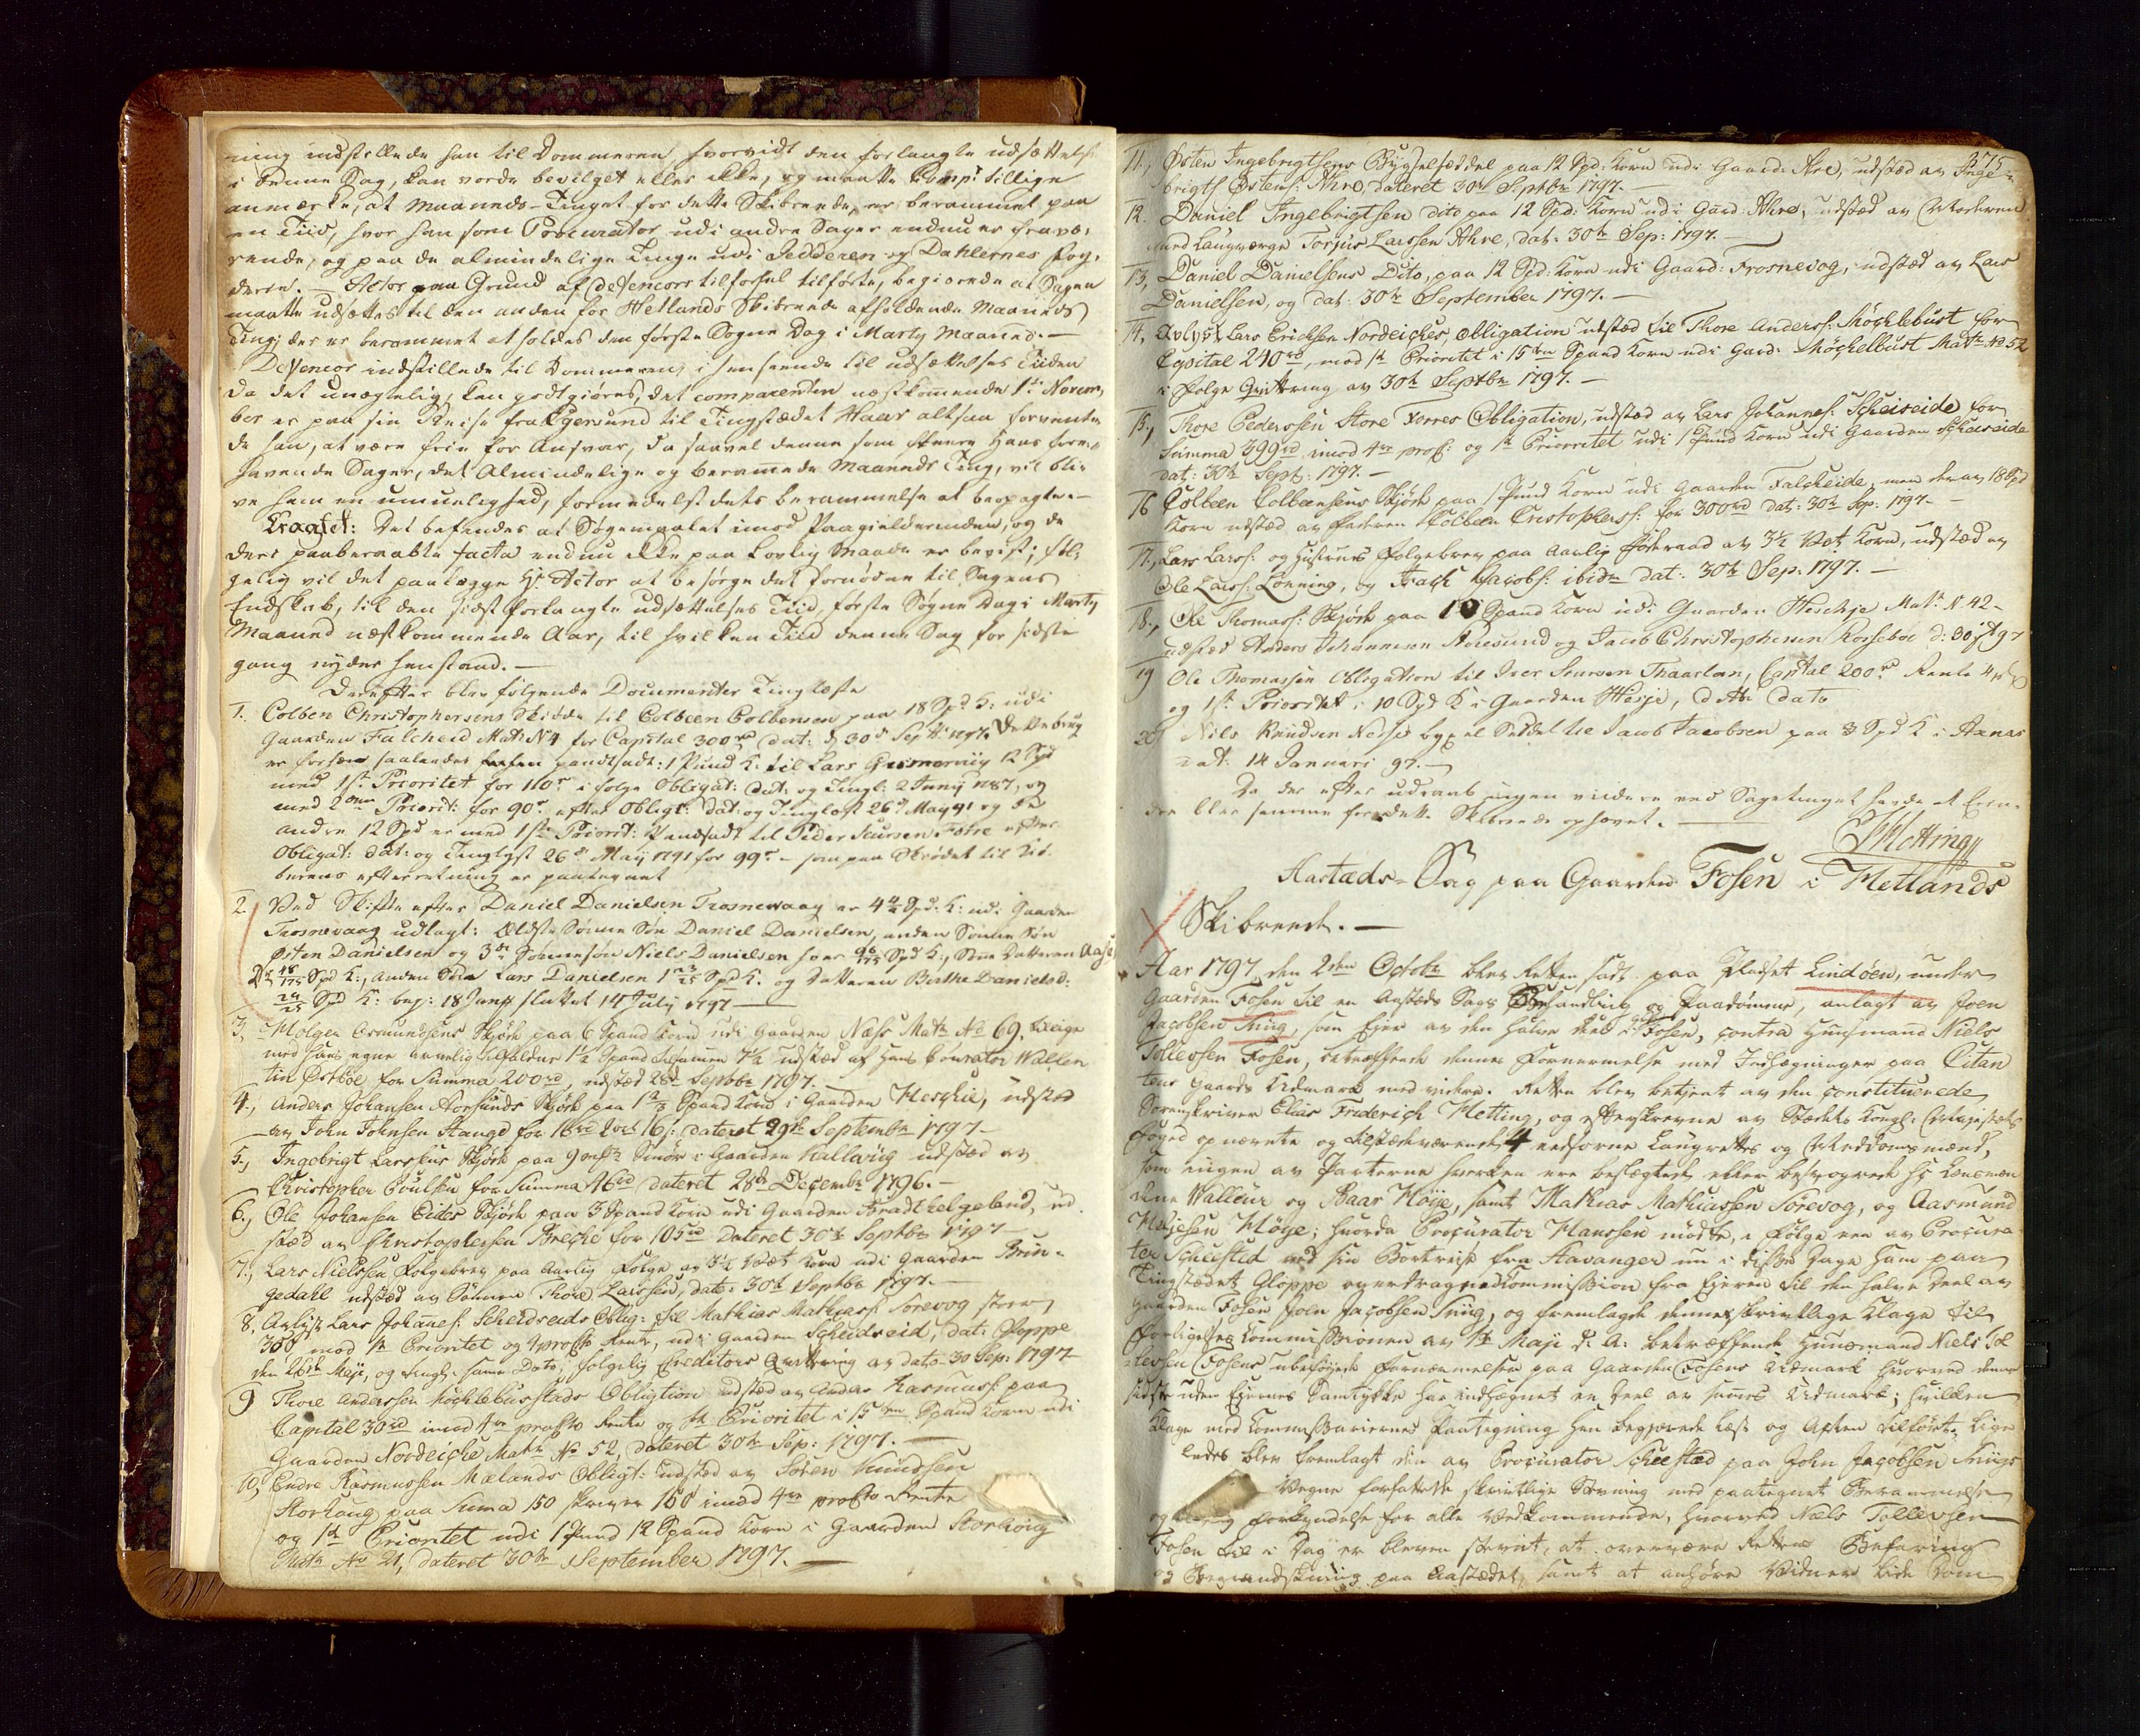 ning indstillede han til Dommeren, hvorvidt den forlangte udsættelse
i denne Sag, kan vorde bevilget eller ikke, og maatte Comp: tillige
anmærke, at Maaneds-Tinget for dette Skibrende, er berammet paa
en Tiid, hvor han som Procurator udi andre Sager endnu er fravæ-
rende, og paa de almindelige Tinge udi Jedderen og Dahlernes Fog-
derie. - Actor paa Grund af Defencors tilforhel tilførte, begierede at Sagen
maatte udsættes til den anden for Hetlands Skibrende afholdende Maaneds
Ting, der er berammet at holdes den første Søgne Dag i Marty Maaned. -
Defencor indstillede til Dommeren, i henseende til udsættelses Tiiden
da det unægtelig, kan godtgiøres, det comparenten næstkommende 1te Novem-
ber er paa sin Reise fra Egersund til Tingstædet Haar altsaa forvente
de han, at være frie for Ansvar, da saavel denne som fleere Hans forre-
havende Sager, det Almindelige og berammede Maaneds Ting, vil bli-
ve ham en umuelighed, formedelst dets berammelse at beopagte. -
Eragtet: Det befandes at Søgemaalet imod Paagieldernden, og de
ders paaberaabte facta endnu ikke paa Lovlig Maade er beviist; føl-
gelig vil det paalegge Hr Actor at besørge det fornødne til Sagens
Endskab, til den sidst forlangte udsættelses Tiid, første Søgne Dag i Marty
Maaned næstkommende Aar, til hvilken Tiid denne Sag for sidste
gang nyder henstand. -
Derefter blev følgende Documenter Tinglæste
1. Colben Christophersens Skiøde til Colbeen Colbensen paa 18 Spd K: udi
Gaarden Falcheid Mat: N 4 for Capital 300 rd dat: d 30d Septb: 1797. Dette brug
er forhen saaledes pandtsadt: 1 Pund K: til Lars 12 Spd
med 1ste Prioritet for 110 r i følge Obligat: dat: og Tingl: 2 Junij 1787, og
med 2den Priorit: for 90 r efter Obligt: dat: og Tinglæst 26 d May 91 og de
andre 12 Spd er med 1ste Priorit: Pandsadt til Peder Saursen Førre efter
Obligat: dat: og Tinglyst 26 d May 1791 for 99 r - som paa Skiødet til Kiø-
berens efterretning er paategnet
2. Ved Skifte efter Daniel Danielsen Trosnevaag er 4 Spd. K: udi Gaarden
Trosnevaag udlagt: Eldste Sønne Søn Daniel Danielsen, anden Sønne Søn
Østen Danielsen og 3de Sønnesøn Niels Danielsen hver Spd K:, Søne Datteren Aase
D: Spd K:, anden Søn Lars Danielsen 1 Spd K. og Datteren Birthe Danielsd:
Spd K: beg: 18 Junij sluttet 14 July 1797
3, Holger Osmundsens Skjøde paa 6 Spand Korn udi Gaarden Næss Matr No 69, beliige
med hans egne arvelig tilfaldne 1½ Spand tilsammen 7½ udstæd af hans Courator Wallen
tin Østboe for Summa 200 rd, udstæd 28d Septbr 1797.
4, Anders Johansen Aorsunds Skjøde paa 1 2/3 Spand Korn i Gaarden Heschie, udstæd
av John Johnsen Haugd for 16 rd 2 ort 16 s: dateret 29de Septembr 1797 -
5, Ingebrigt Larssens Skjøde paa 9 Smør i Gaarden Hallwig udstæd av
Christopher Poulsen for Summa 96 rd dateret 28de Decembr 1796. -
6, Ole Johansen Eides Skjøde paa 3 Spand Korn udi Gaarden Bradthelgeland, ud
stæd av Christophersen Breche for 105 rd dateret 30te Septbr 1797
7, Lars Nielssen Følgebrev paa Aarlig Følge av 3½ Vet Korn udi Gaarden Brün-
gedahl udstæd av Sønnen Thore Larssen, dat: 30te Septbr 1797. -
8. Avlyst Lars Johanes: Scheidreids Oblig: til Mathias Mathias: Sørevog stor
300 mod 1te Prioritet og 4 profto Rente, udi Gaarden Scheidreid, dat: Gloppe
den 26de Maji, og tingl: samme Dato, følgelig Creditors Qvittering av dato 30 Sep: 1797
9 Thore Anderssen Mochlebustads Obligtion udstæd av Andas Rasmuss: paa
Capital 30 rd imod 4re profto Rente og 1te Prioritet i 15 ten Spand Korn udi
Gaarden Nordeiche Matr No 52, dateret 30te Sep: 1797. -
10, Endre Rasmussen Mælands Obligt: udstæd av Søren Knudssen
Storhoug paa Suma 150 skriver 150 imod 4re profto Rente
og 1te Prioritet udi 1 Pund 12 Spand Korn i Gaarden Storhoug
Matr No 21, dateret 30te September 1797. -
375
11, Østen Ingebrigtsens Bygselseddel paa 12 Spd: Korn udi Gaard: Ahre, udstæd av Inge-
brigts Østens: Ahre, dateret 30te Septbr 1797. -
12. Daniel Ingebrigtsen dito paa 12 Spd: Korn udi Gaard: Ahre, udstæd av Moderen
med Laugværge Torjus Larssen Ahre, dat: 30te Sep: 1797. -
13, Daniel Danielsens Dito, paa 12 Spd: Korn udi Gaard: Trosnevog, udstæd av Lars
Danielsen, og dat: 30te September 1797. -
14, Avlyst Lars Ericksen Nordeiches, Obligation udstæd til Thore Anderss: Møchlebust for
Capital 240 rd, mod 1te Prioritet i 15 ten Spand Korn udi Gard: Møchelbust Matr No 52
i Følge Qvittering av 30te Septbr 1797. -
15, Thore Pederssen Store Førres Obligation, udstæd av Lars Johannes: Scheiseide for
Summa 399 rd imod 4re prof: og 1te Prioritet udi 1 Pund Korn udi Gaarden Scheiseide
dat: 30te Sept: 1797. -
16 Colbeen Colbeensens Skjøde paa 1 Pund Korn udi Gaarden Falcheide, men derav 18 Spd
Korn udstæd av Faderen Colbeen Cristopherss: for 300 rd dat: 30te Sep: 1797. -
17, Lars Larss: og Hustrues Følgebrev paa Aarlig Føderaad av 3½ Vet Korn, udstæd av
Ole Larss: Lønning, og Isach Jacobs: ibidm dat: 30te Sep: 1797. -
18., Ole Thomass: Skjøde paa 10 Spand Korn udi Gaarden Heschje Matr N 42 -
udstæd Anders Johannesen Aoresund og Jacob Christophersen Rossebøe d: 30 97
19 Ole Thomassen Obligation til Iver Sjursen Thaarlan, Capital 200 rd Rente 4 pct
og 1ste Prioritet i 10 Spd K i Gaarden Hesje, ditto Dato
20 Nils Knudsen Nedsis bygsel Seddel til Jacob Jacobsen paa 8 Spd K i Aanas
dat: 14 Januari 97. -
Da der efter udraab ingen vidre ved Sagetinget havde at Erin-
dre blev samme for dette Skibreede ophævet. -
FHetting
Aastæds-Sag paa Gaarden Fosen i Hetlands
Skibreede. -
Aar 1797 den 2den Octobr blev Retten sadt paa Pladset Lindøen, under
Gaarden Fosen til en Aastæds Sags Behandling og Paadømme, anlagt av Joen
Jacobsen Snüg, som Ejer av den halve deel i Fosen, contra Huusmand Niels
Tollevsen Fosen, betræffende dennes Fornermelse med Indhægninger paa Citan
tens gaards Udmark med videre. Retten blev betjent av den constituerede
Sorenskriver Elias Friderich Hetting, og efterskrevne av Stædets Kongl: Majestæts
Foged opnævnte og tilstædeværende 4 eedsorne Laugrettes og Meddomsmænd,
som ingen av Parterne hverken ere beslægtede eller besvogrede Hr Lensmæn
dene Walleür og Baar Høye, samt Mathias Mathiassen Sørevog, og Aasmund
Høyesen Høye; hvorda Procurator Hanssen mødte, i Følge een av Procura
tor Scheested ved sin Bortreise fra Stavanger nu i disse Dage ham paa
Tingstædet Gloppe overdragne Kommission fra Ejeren til den halve Deel av
Gaarden Fosen Joen Jacobsen Snüg, og fremlagde dennes skrivtlige Klage til
Forligelses Kommissionen av 1te Maji d: A: betræffende Huusmand Niels Tol
levsen Fosens ubeføjede Fornærmelse paa Gaarden Fosens Udmark hvorved denne
sidste uden Ejernes Samtykke har indhægnet en Deel av samme Udmark; hvilken
Klage med Kommissariernes Paategning han begjerede læst og Acten tilført. Lige
ledes blev fremlagt den av Procurator Scheested paa John Jacobsen Snügs
Vegne forfattede skrivtlige Stevning med paategnet Berammelse
og Forkyndelse for alle Vedkommende, hvorved Niels Tollevsen
Fosen til i Dag er bleven stevnt, at overvære Rettens Befaring
og Begrandskning paa Aastædet, samt at anhøre Vidner lide Dom